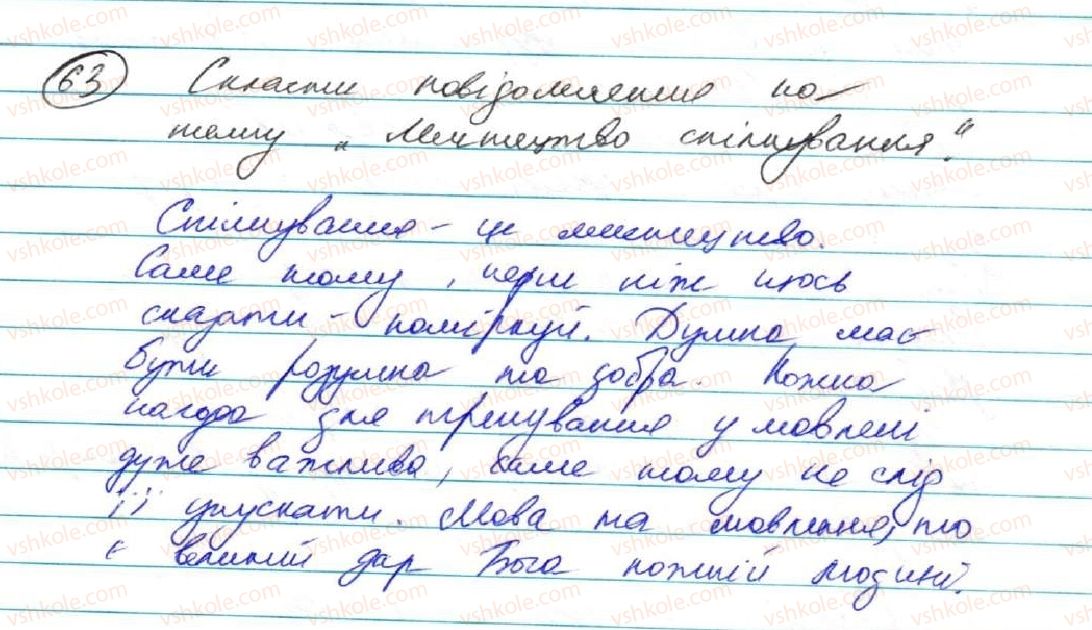 63 Скласти повідомлення на
тему „Мистецтво спілкування".
Спілкування – це мистецтво.
Саме тому, перш ніж щось
сказати – поміркуй. Думка має
бути розумна та добра. Кожна
нагода для тренування у мовлені
дуже важлива, саме тому не слід
її упускати. Мова та мовлення, то
є великий дар Бога кожній людині.